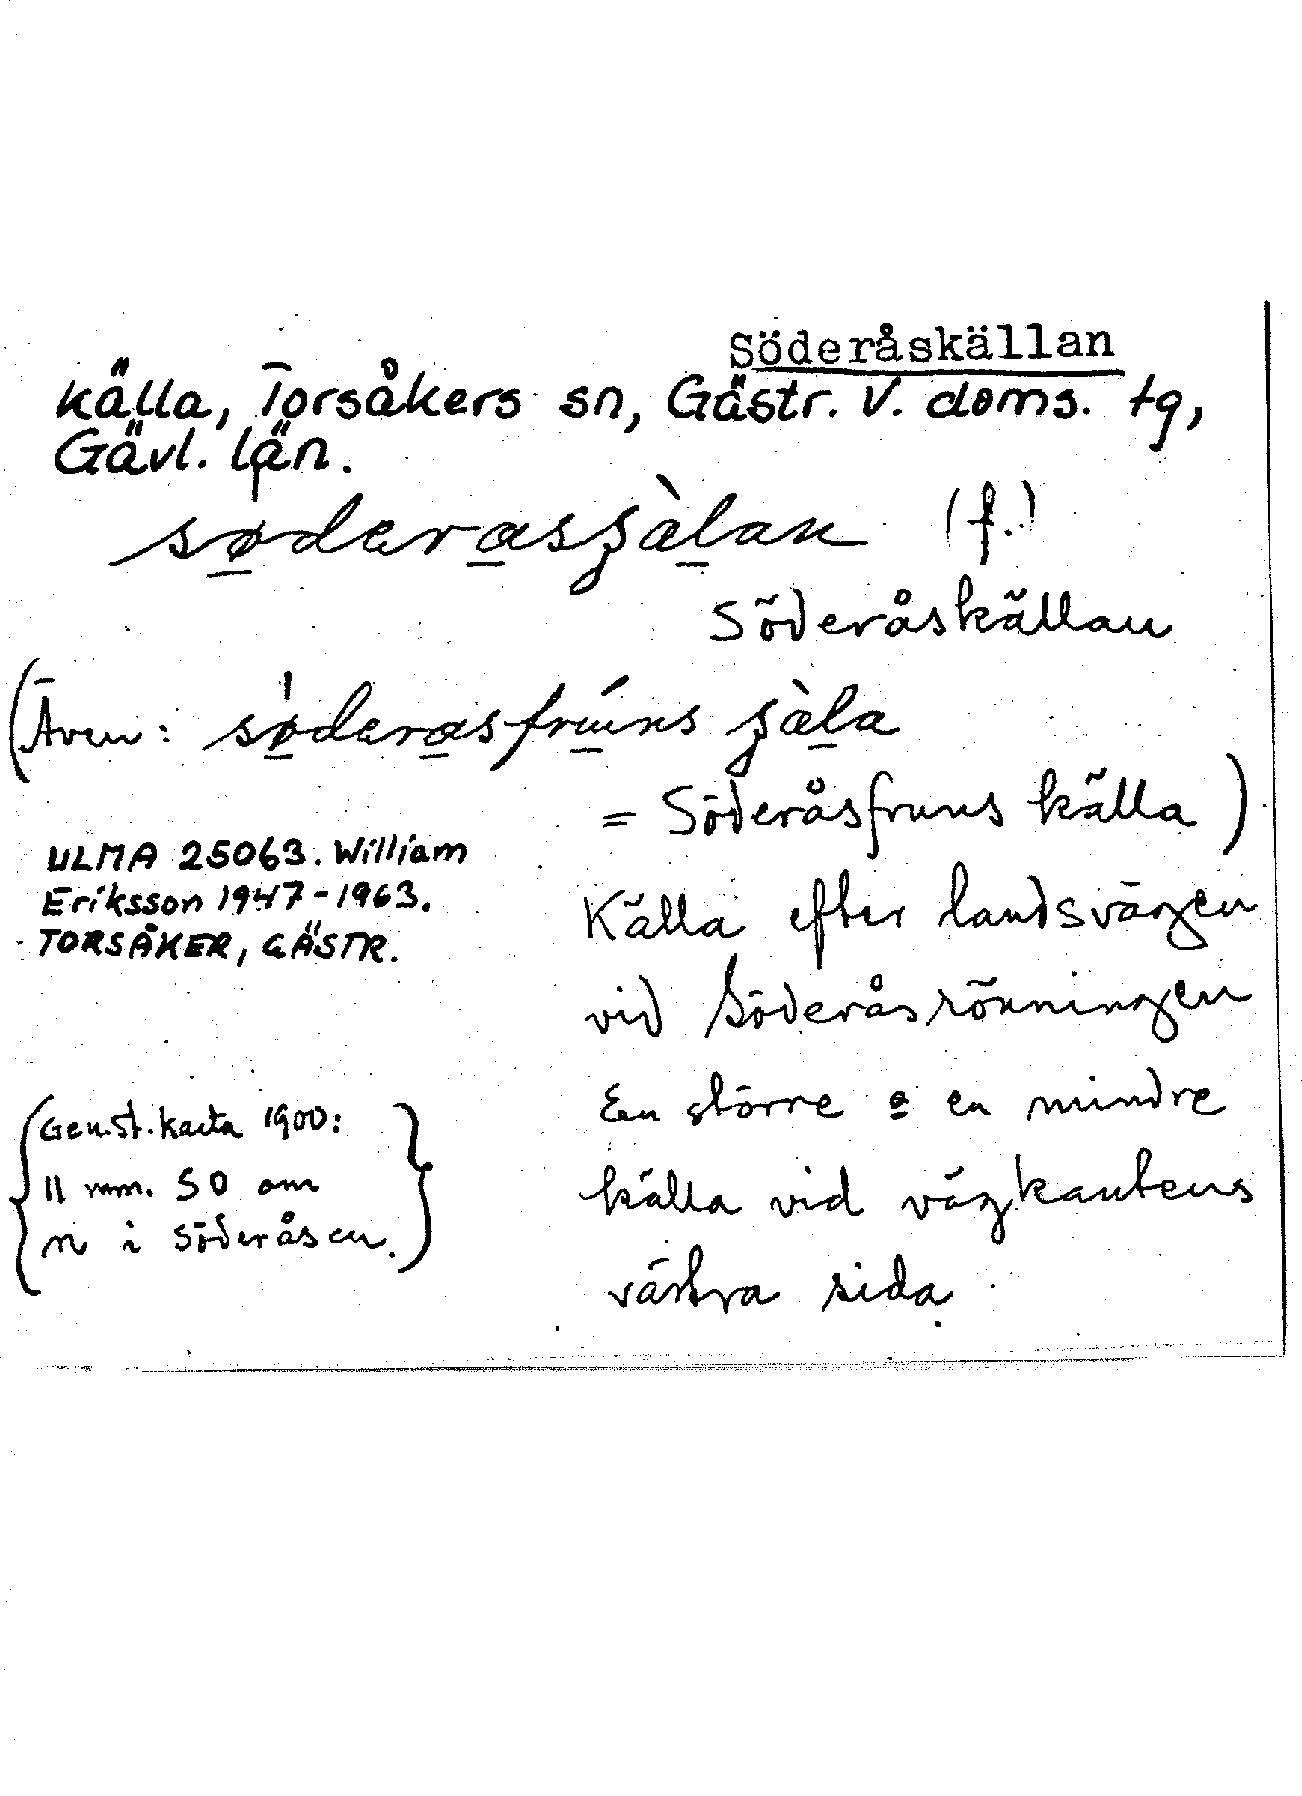 Söderåskällan
källa, Torsåkers sn, Gästr. V. doms. tg,
Gävl. län.
(f.)
Söderåskällan
(Även:
= Söderåsfruns källa)
ULMA 25063. William
Eriksson 1947-1963.
TORSÅKER, GÄSTR.
Källa efter landsvägen
vid Söderåsrönningen
En större o en mindre
källa vid vägkantens
västra sida.
{Gen.st.karta 1900:
11 mm. SO om
n i Söderåsen.}